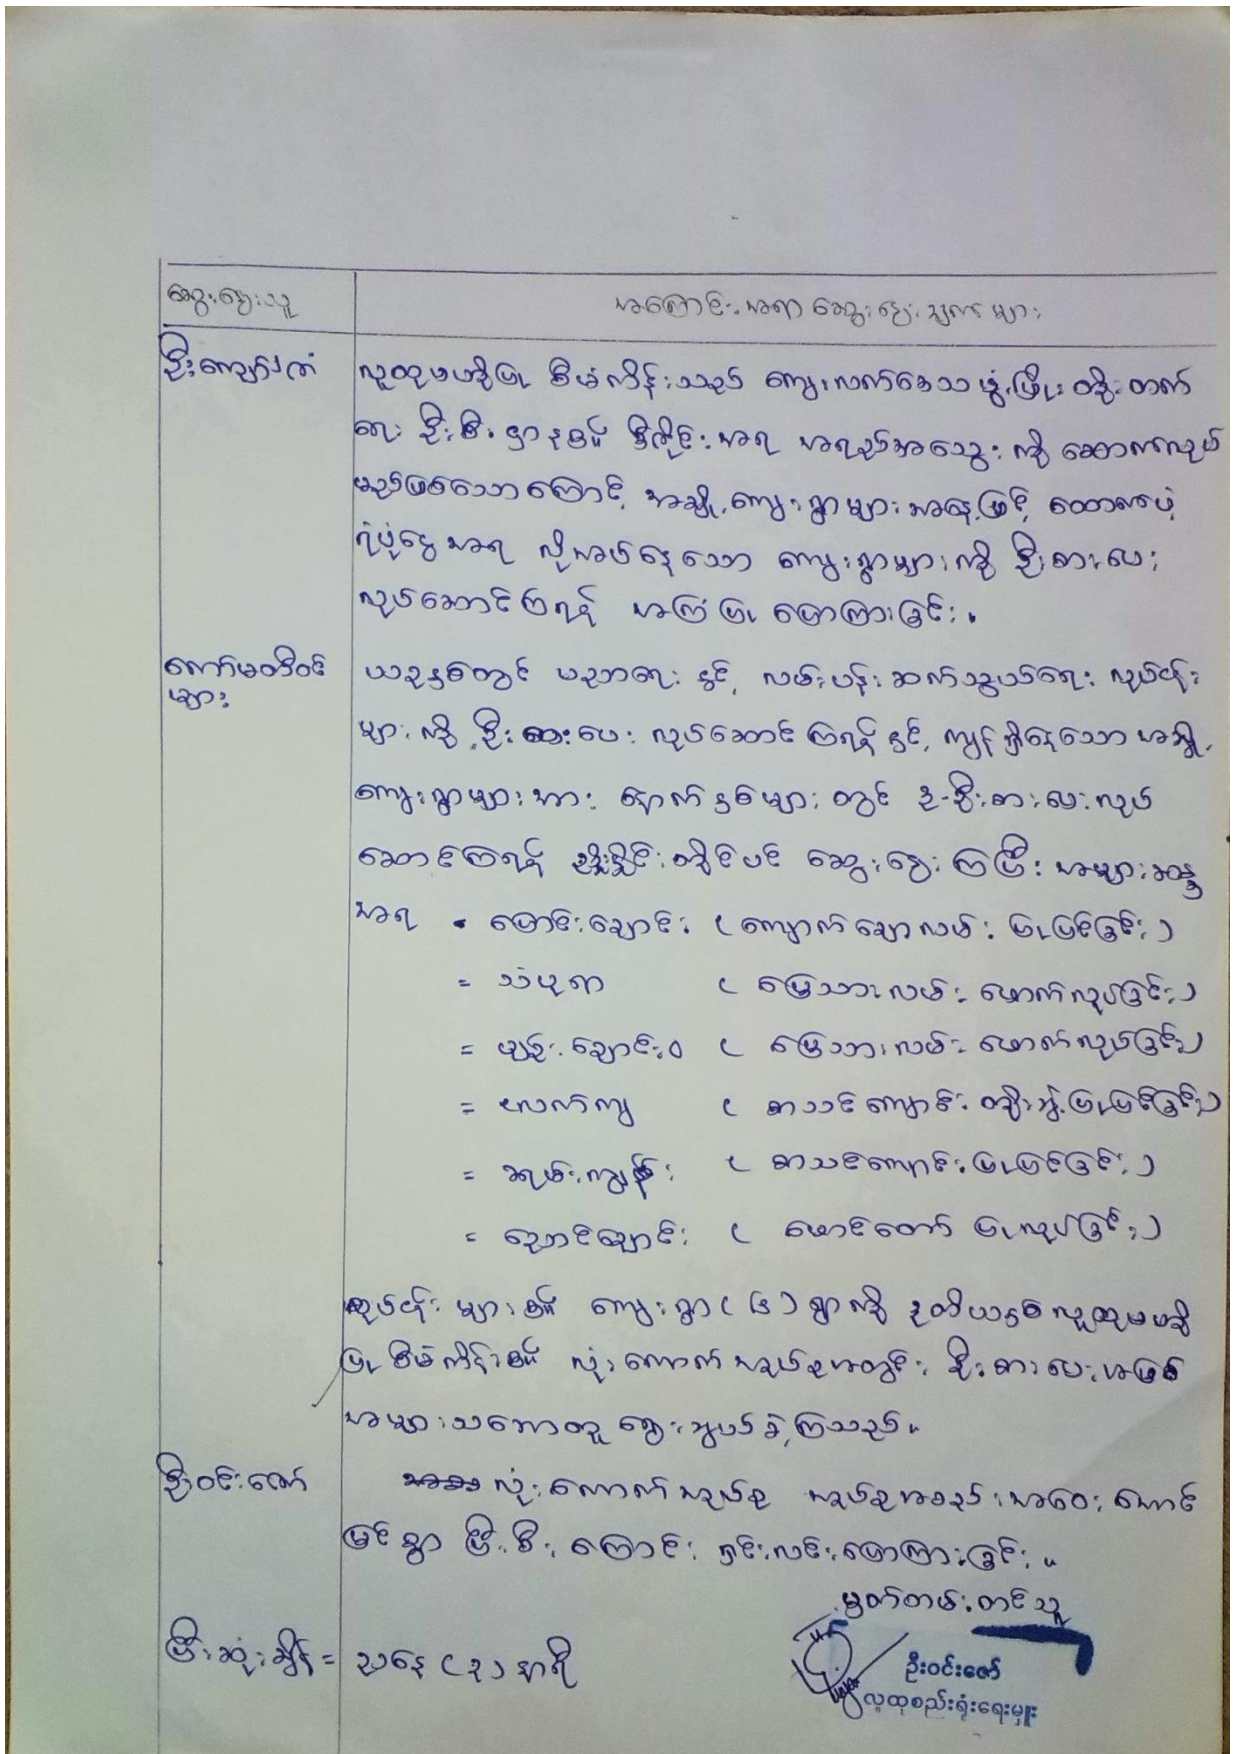 ဆွေးနွေးသူ အကြောင်းအရာ ဆွေးနွေးချက်များ
ဦးကျော်
လူထုဗဟိုပြု စီမံကိန်းသည် ကျေးလက်ဒေသ ဖွံ့ဖြိုး တိုးတက်
ရေး ဦးစီးဌာန၏ အရ အရည်အသွေးကို ဆောက်လုပ်
မည်ဖြစ်သောကြောင့် အချို့ကျေးရွာများအနေဖြင့် ထောက်ပံ့
ရံပုံငွေအရ လိုအပ်နေသော ကျေးရွာများကို ဦးစားပေး
လုပ်ဆောင်ကြရန် အကြံပြု ပြောကြားခြင်း။
ကော်မတီဝင်
များ
ယခုနှစ်တွင် ပညာရေး နှင့် လမ်းပန်းဆက်သွယ်ရေး လုပ်ငန်း
များကို ဦးစားပေး လုပ်ဆောင်ကြရန် နှင့် ကျန်ရှိနေသော အချို့
ကျေးရွာများအား နောက်နှစ်များတွင် ဦးစားပေးလုပ်
ဆောင်ကြရန် ညှိနှိုင်းတိုင်ပင် ဆွေးနွေးကြပြီး အများဆန္ဒ
အရ = မြောင်းချောင်း (ကျောက်ချောလမ်း ပြုပြင်ခြင်း)
= သံပုရာ (မြေသားလမ်း ဖောက်လုပ်ခြင်း)
= ချောင်းဝ (မြေသားလမ်း ဖောက်လုပ်ခြင်း)
= (စာသင်ကျောင်း တိုးချဲ့ပြုပြင်ခြင်း)
= ကျွန်း (စာသင်ကျောင်း ပြုပြင်ခြင်း)
= ညောင်ချောင်း (ဖောင်တော် ပြုလုပ်ခြင်း)
လုပ်ငန်းများ၏ ကျေးရွာ (၆) ရွာကို ဒုတိယနှစ် လူထုဗဟို
ပြု စီမံကိန်း၏ လုံးကောက်နယ်မြေအတွင်း ဦးစားပေးအဖြစ်
အများသဘောတူ ရွေးချယ်ခဲ့ကြသည်။
ဦးဝင်းဇော်
လုံးကောက် အစည်းအဝေး အောင်
မြင်စွာ ပြီးစီးကြောင်း ရှင်းလင်းပြောကြားခြင်း။
မှတ်တမ်းတင်သူ
ပြီးဆုံးချိန် = ညနေ (၃) နာရီ
ဦးဝင်းဇော်
လူထုစည်းရုံးရေးမှူး